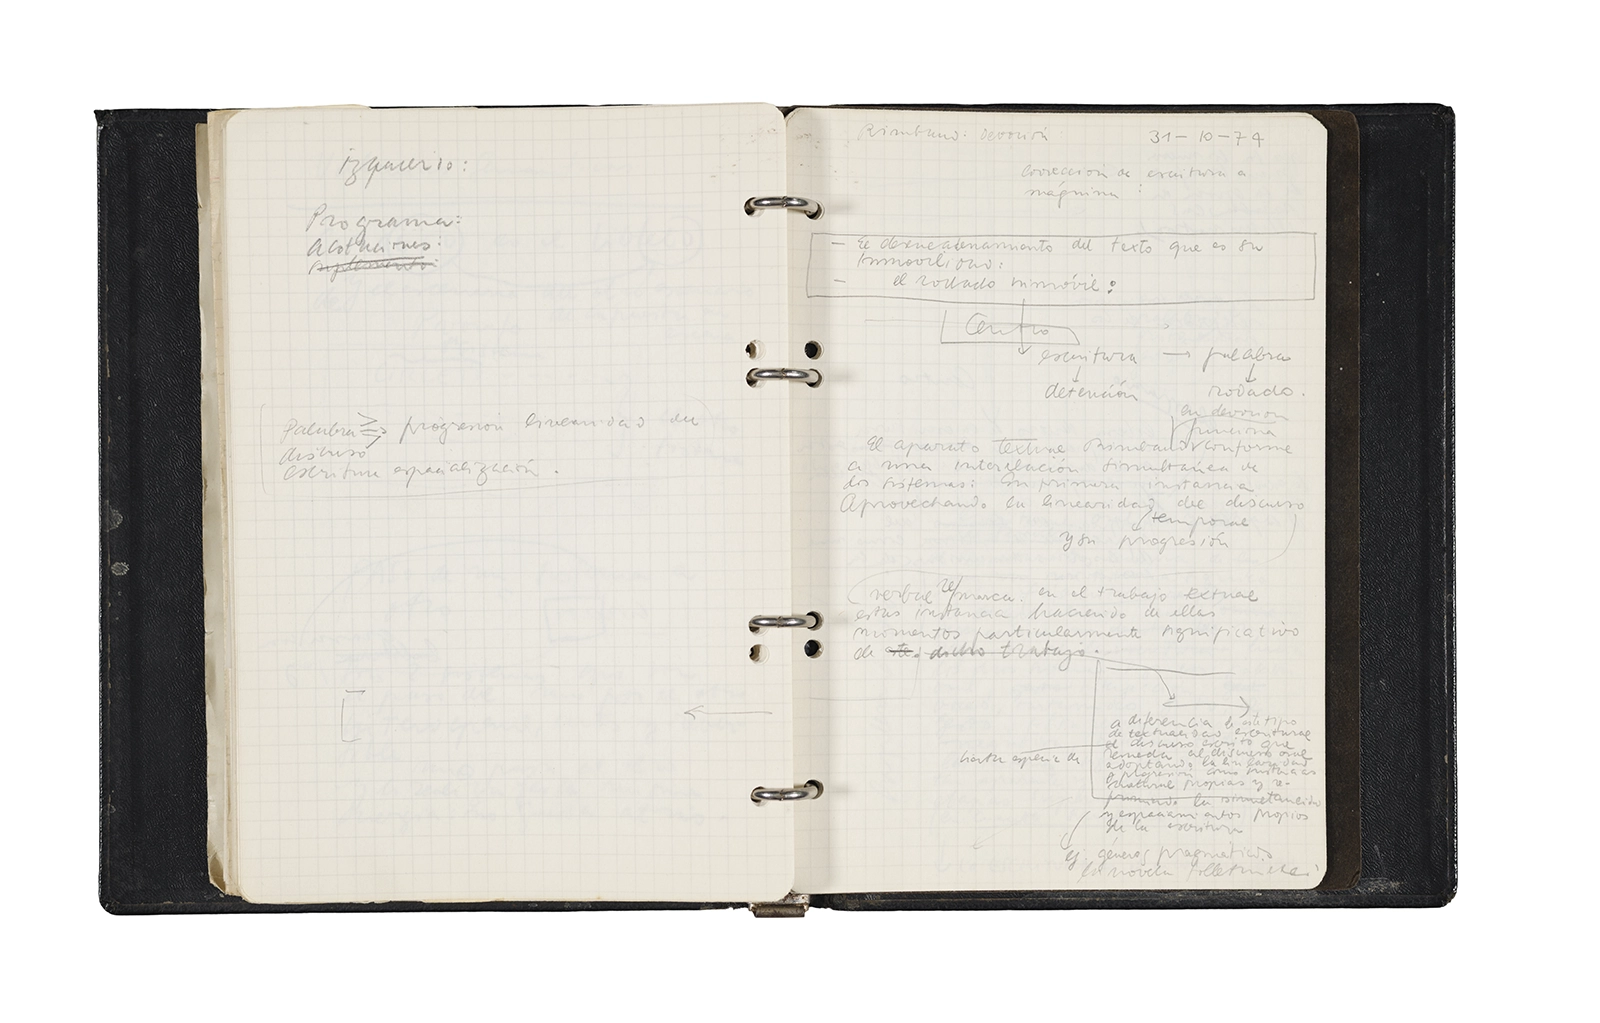 izquierdo:
Programa:
acotaciones:
suplemento:
Palabra progresión linearidad del
discurso
escritura espacialización.
Rimbaud: devoción
31-10-74
corrección de escritura a
máquina:
- El desencadenamiento del texto que es su
inmovilidad:
- el rodado inmóvil:
Centro
escritura → palabra
detención rodado.
en devoción
funciona
El aparato textual Rimbaud conforme
a una interelación simultánea de
dos sistemas: En primera instancia
Aprovechando la linearidad del discurso
temporal
y su progresión
verbal re/marca en el trabajo textual
estas instancia haciendo de ellas
momentos particularmente significativo
de este dicho trabajo.
a diferencia de este tipo
de textualidad escritural
el discurso escrito que
remeda al discurso oral
adoptando la linearidad
y progresión como instancias
natural propias y re-
primiendo la simultaneidad
y espaciamientos propios
de la escritura
ej. géneros pragmáticos
la novela